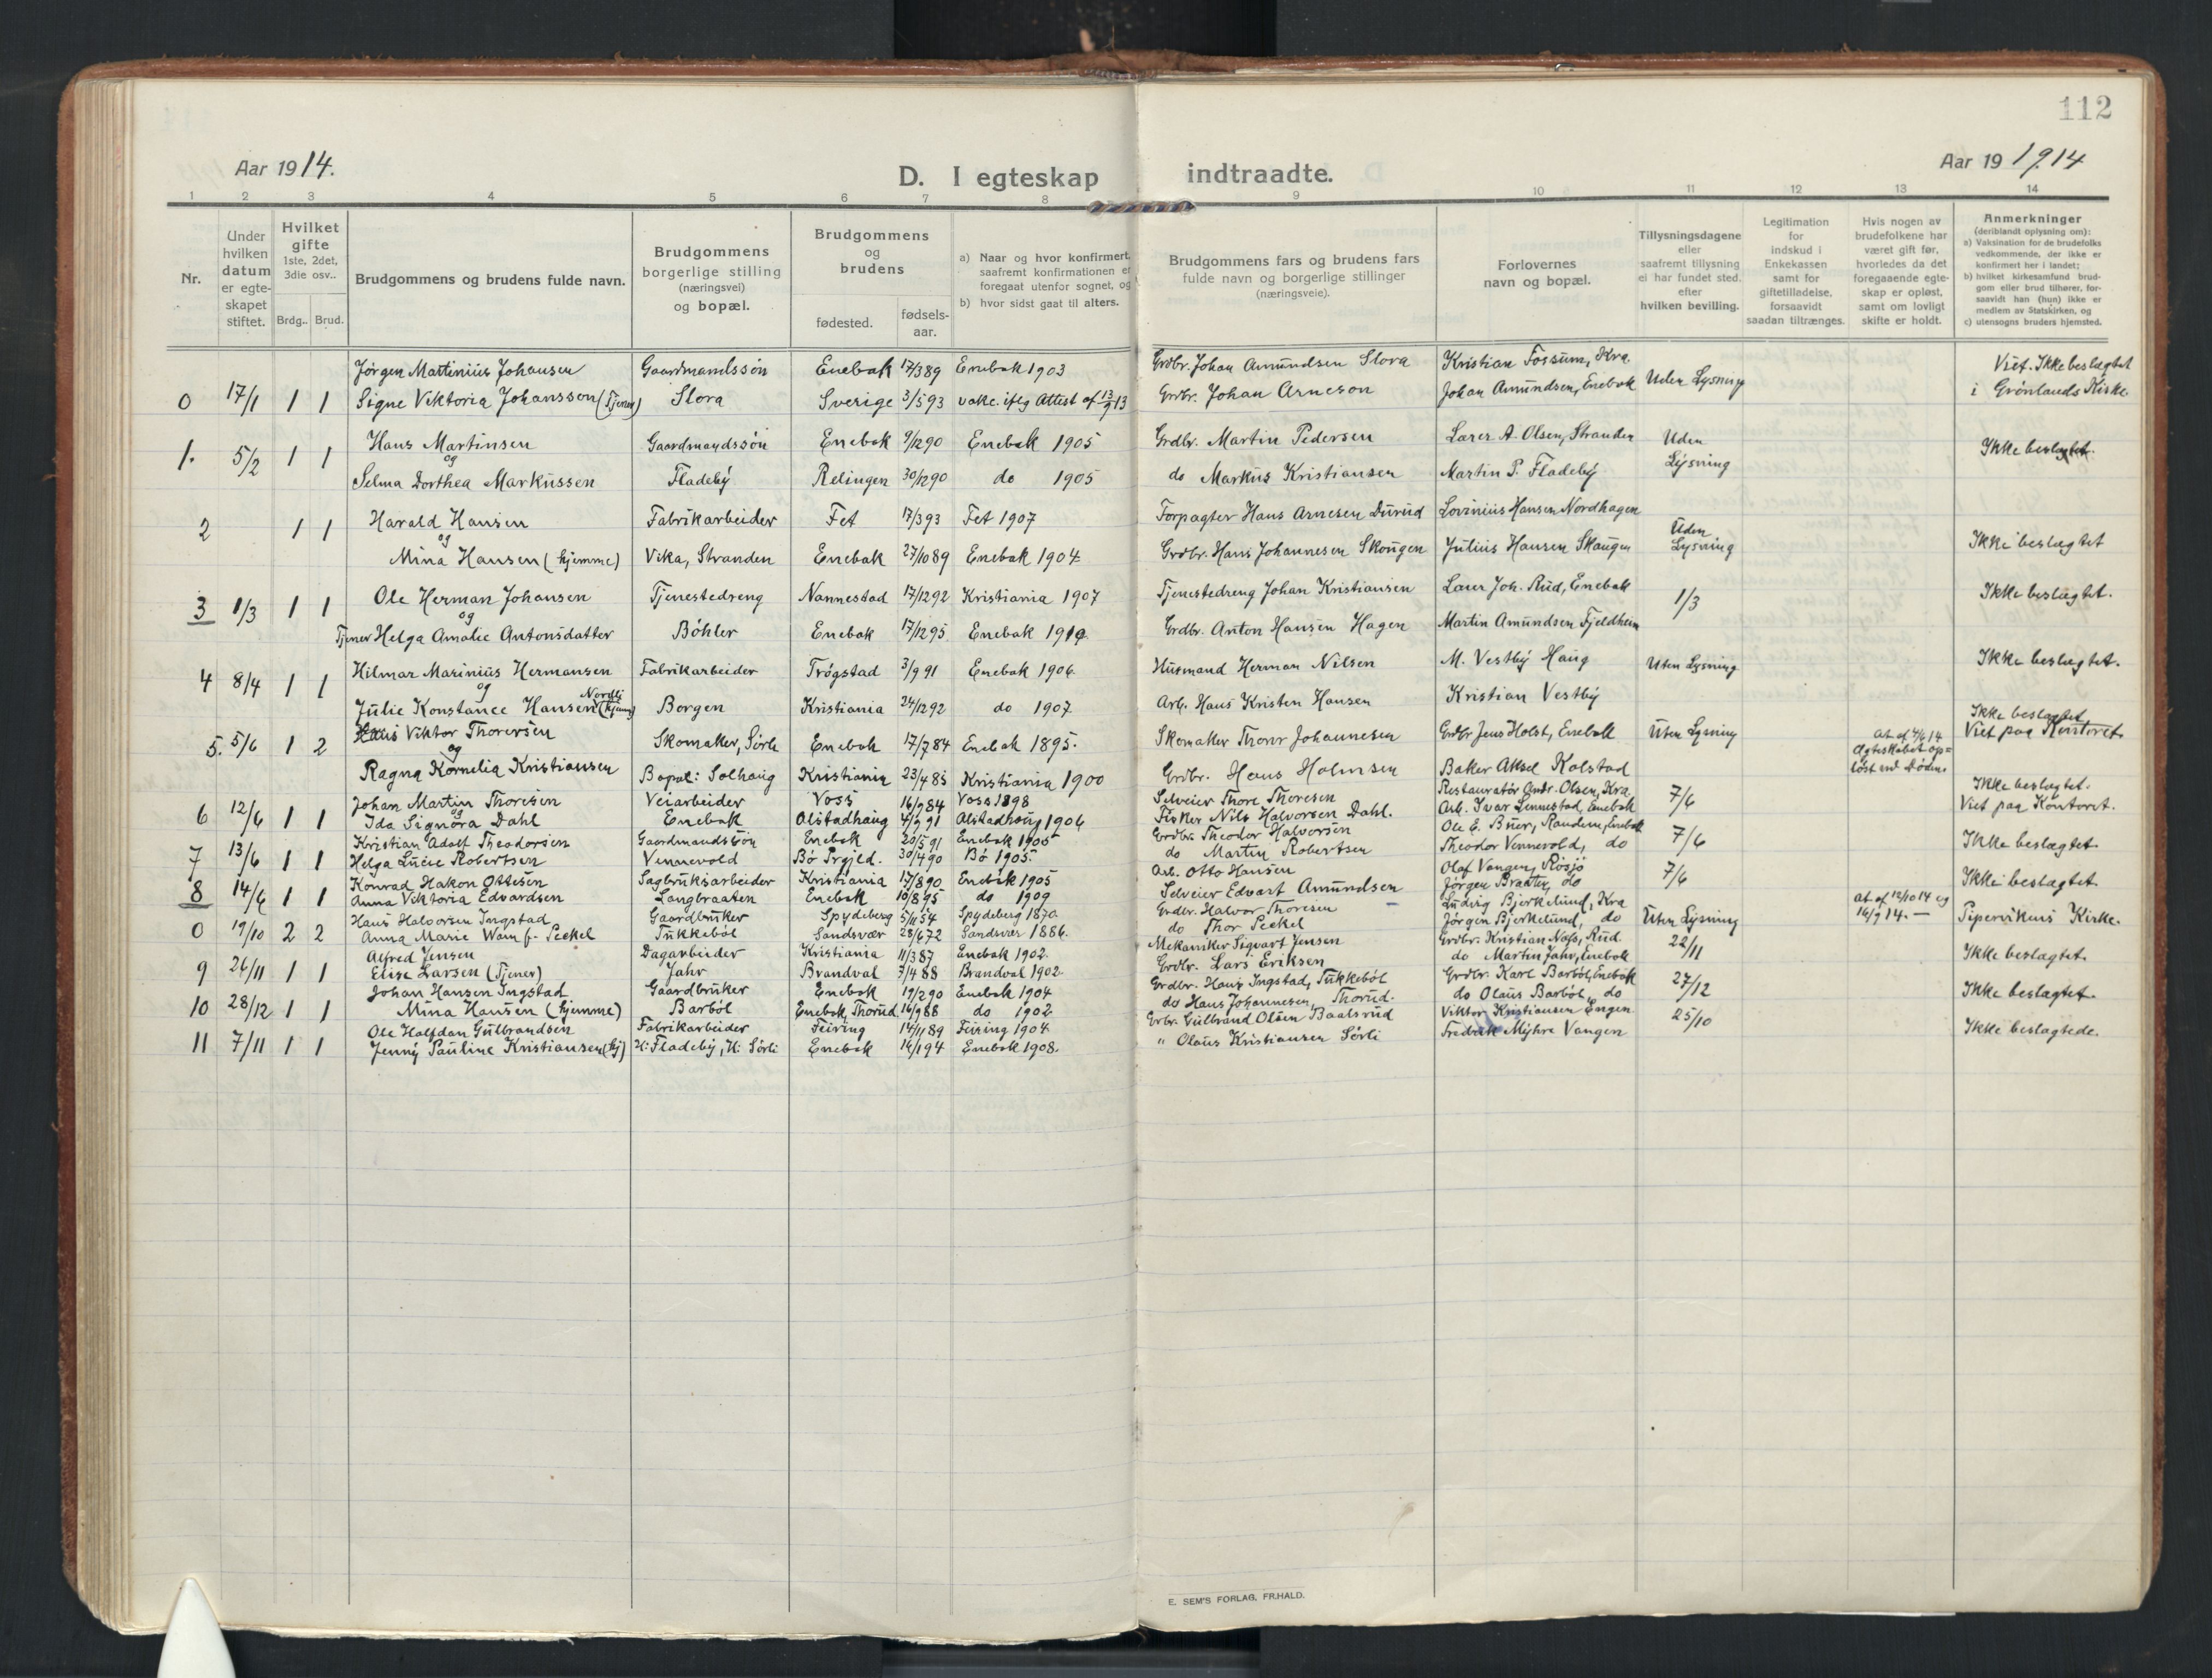 112
Aar 1914.
D. I egteskap indtraadte.
Aar 19 1914
1 2 3 4 5 6 7 8 9 10 11 12 13 14
Nr.
Under hvilken datum er egteskapet stiftet.
Hvilket gifte 1ste, 2det, 3die osv..
Brdg.. Brud.
Brudgommens og brudens fulde navn.
Brudgommens borgerlige stilling (næringsvei) og bopæl.
Brudgommens og brudens
fødested.
fødsels-aar.
a) Naar og hvor konfirmert, saafremt konfirmationen er foregaat utenfor sognet, og
b) hvor sidst gaat til alters.
Brudgommens fars og brudens fars fulde navn og borgerlige stillinger (næringsveie).
Forlovernes navn og bopæl.
Tillysningsdagene eller saafremt tillysning ei har fundet sted. efter hvilken bevilling.
Legitimation for indskud i Enkekassen samt for giftetilladelse, forsaavidt saadan tiltrænges.
Hvis nogen av brudefolkene har været gift før, hvorledes da det foregaaende egteskap er opløst, samt om lovligt skifte er holdt.
Anmerkninger (deriblandt oplysning om):
a) Vaksination for de brudefolks vedkommende, der ikke er konfirmert her i landet;
b) hvilket kirkesamfund brudgom eller brud tilhører, forsaavidt han (hun) ikke er medlem av Statskirken, og
c) utensogns bruders hjemsted.
Jørgen Martinius Johansen Gaardmandssøn Enebak 17/3 89 Enebak 1903 Grdbr. Johan Amundsen Stora Kristian Fossum, Kra. Viet. Ikke beslægtet
0 17/1 1 1 Signe Viktoria Johansson (Tjener) Stora Sverige 3/5 93 vakc. iflg Attest af 13/9 13 Grdbr. Johan Arneson Johan Amundsen, Enebak Uden Lysning i Grønlands Kirke.
1. 5/2 1 1 Hans Martinsen Gaardmandssøn Enebak 9/12 90 Enebak 1905 Grdbr. Martin Pedersen Larer A. Olsen, Stranden Uden Ikke beslægtet.
og
Selma Dorthea Markussen Fladeby Relingen 30/12 90 do 1905 do Markus Kristiansen Martin P. Fladeby Lysning
2 1 1 Harald Hansen Fabrikarbeider Fet 17/3 93 Fet 1907 Forpagter Hans Arnesen Durud Lovinius Hansen Nordhagen Uden
og
Mina Hansen (hjemme) Vika, Stranden Enebak 27/10 89 Enebak 1904 Grdbr. Hans Johannesen Skougen Julius Hansen Skaugen Lysning Ikke beslægtet
3 1/3 1 1 Ole Herman Johansen Tjenestedreng Nannestad 17/12 92 Kristiania 1907 Tjenestedreng Johan Kristiansen Larer Joh. Rud, Enebak 1/3 Ikke beslægtet.
og
Tjener Helga Amalie Antonsdatter Böhler Enebak 17/12 95 Enebak 1910 Grdbr. Anton Hansen Hagen Martin Amundsen Fjeldheim
4 8/4 1 1 Hilmar Marinius Hermansen Fabrikarbeider Trøgstad 3/9 91 Enebak 1906 Husmand Herman Nilsen M. Vestby Haug Uten Lysning Ikke beslægtet.
og Nordli
Julie Konstance Hansen (hjem) Borgen Kristiania 24/12 92 do 1907 Arb. Hans Kristen Hansen Kristian Vestby
5. 5/6 1 2 Hans Viktor Thoresen Skomaker, Sørli Enebak 17/7 84 Enebak 1895. Skomaker Thorer Johannesen Grdbr Jens Holst, Enebak Uten Lysning At. af 4/6 14 Ægteskabet opløst ved Døden. Ikke beslægtet Viet paa Kontoret.
og
Ragna Kornelia Kristiansen Bopæl: Solhaug Kristiania 23/4 85 Kristiania 1900 Grdbr. Hans Holmsen Baker Aksel Kolstad
6 12/6 1 1 Johan Martin Thoresen Veiarbeider Voss 16/9 84 Voss 1898 Selveier Thore Thoresen Restauratør Andr. Olsen, Kra. 7/6 Ikke beslægtet.
og
Ida Signora Dahl Enebak Alstadhaug 4/9 91 Alstadhoug 1906 Fisker Nils Halvorsen Dahl. Arb. Ivar Lennestad, Enebak Viet paa Kontoret.
7 13/6 1 1 Kristian Adolf Theodorsen Gaardmandssøn Enebak 20/5 91 Enebak 1905 Grdbr. Theodor Halvorsen Ole E. Buer, Randem, Enebak 7/6 Ikke beslægtet.
Helga Lucie Robertsen Vennevold Bø Prgjeld. 30/4 90 Bø 1905. do Martin Robertsen Theodor Vennevold, do
8 14/6 1 1 Konrad Hakon Ottesen Sagbruksarbeider Kristiania 17/8 90 Enebak 1905 Arb. Otto Hansen Olaf Vangen, Røsjø 7/6 Ikke beslægtet.
Anna Viktoria Edvardsen Langbraaten Enebak 10/8 95 do 1909 Selveier Edvart Amundsen Jörgen Braaten, do
0 19/10 2 2 Hans Halvorsen Ingstad Gaardbruker Spydeberg 5/11 54 Spydeberg 1870 Grdbr. Halvor Thoresen Ludvig Bjerkelund, Kra Uten Lysning At. af 12/10 14 og 16/9 14. — Pipervikens Kirke.
Anna Marie Wam f. Peckel Tukkebøl Sandsvær 28/6 72 Sandsvær 1886. do Thor Peckel Jörgen Bjerkelund, do
9 26/11 1 1 Alfred Jensen Dagarbeider Kristiania 11/3 87 Enebak 1902 Mekaniker Sigvart Jensen Grdbr. Kristian Næs, Rud. 22/11 Ikke beslægtet.
Elise Larsen (Tjener) Jahr Brandval 7/4 88 Brandval 1902 Grdbr. Lars Eriksen do Martin Jahr, Enebak
10 28/12 1 1 Johan Hansen Ingstad Gaardbruker Enebak 19/2 90 Enebak 1904 Grdbr. Hans Ingstad, Tukkebøl Grdbr. Karl Barbøl, Enebak 27/12 Ikke beslægtet.
Mina Hansen (hjemme) Barbøl Enebak, Thorud 16/9 88 do 1902 do Hans Johannesen, Thorud. do Olaus Barbøl, do
11 7/11 1 1 Ole Halfdan Gulbrandsen Fabrikarbeider Feiring 14/11 89 Feiring 1904 Grbr. Gulbrand Olsen Baalsrud Viktor Kristiansen Engen 25/10 Ikke beslægtede.
Jenny Pauline Kristiansen (hj) H: Fladeby, H: Sørli Enebak 14/1 94 Enebak 1908. " Olaus Kristiansen Sørli Fredrik Myhre Vangen
E. SEM'S FORLAG, FR.HALD.